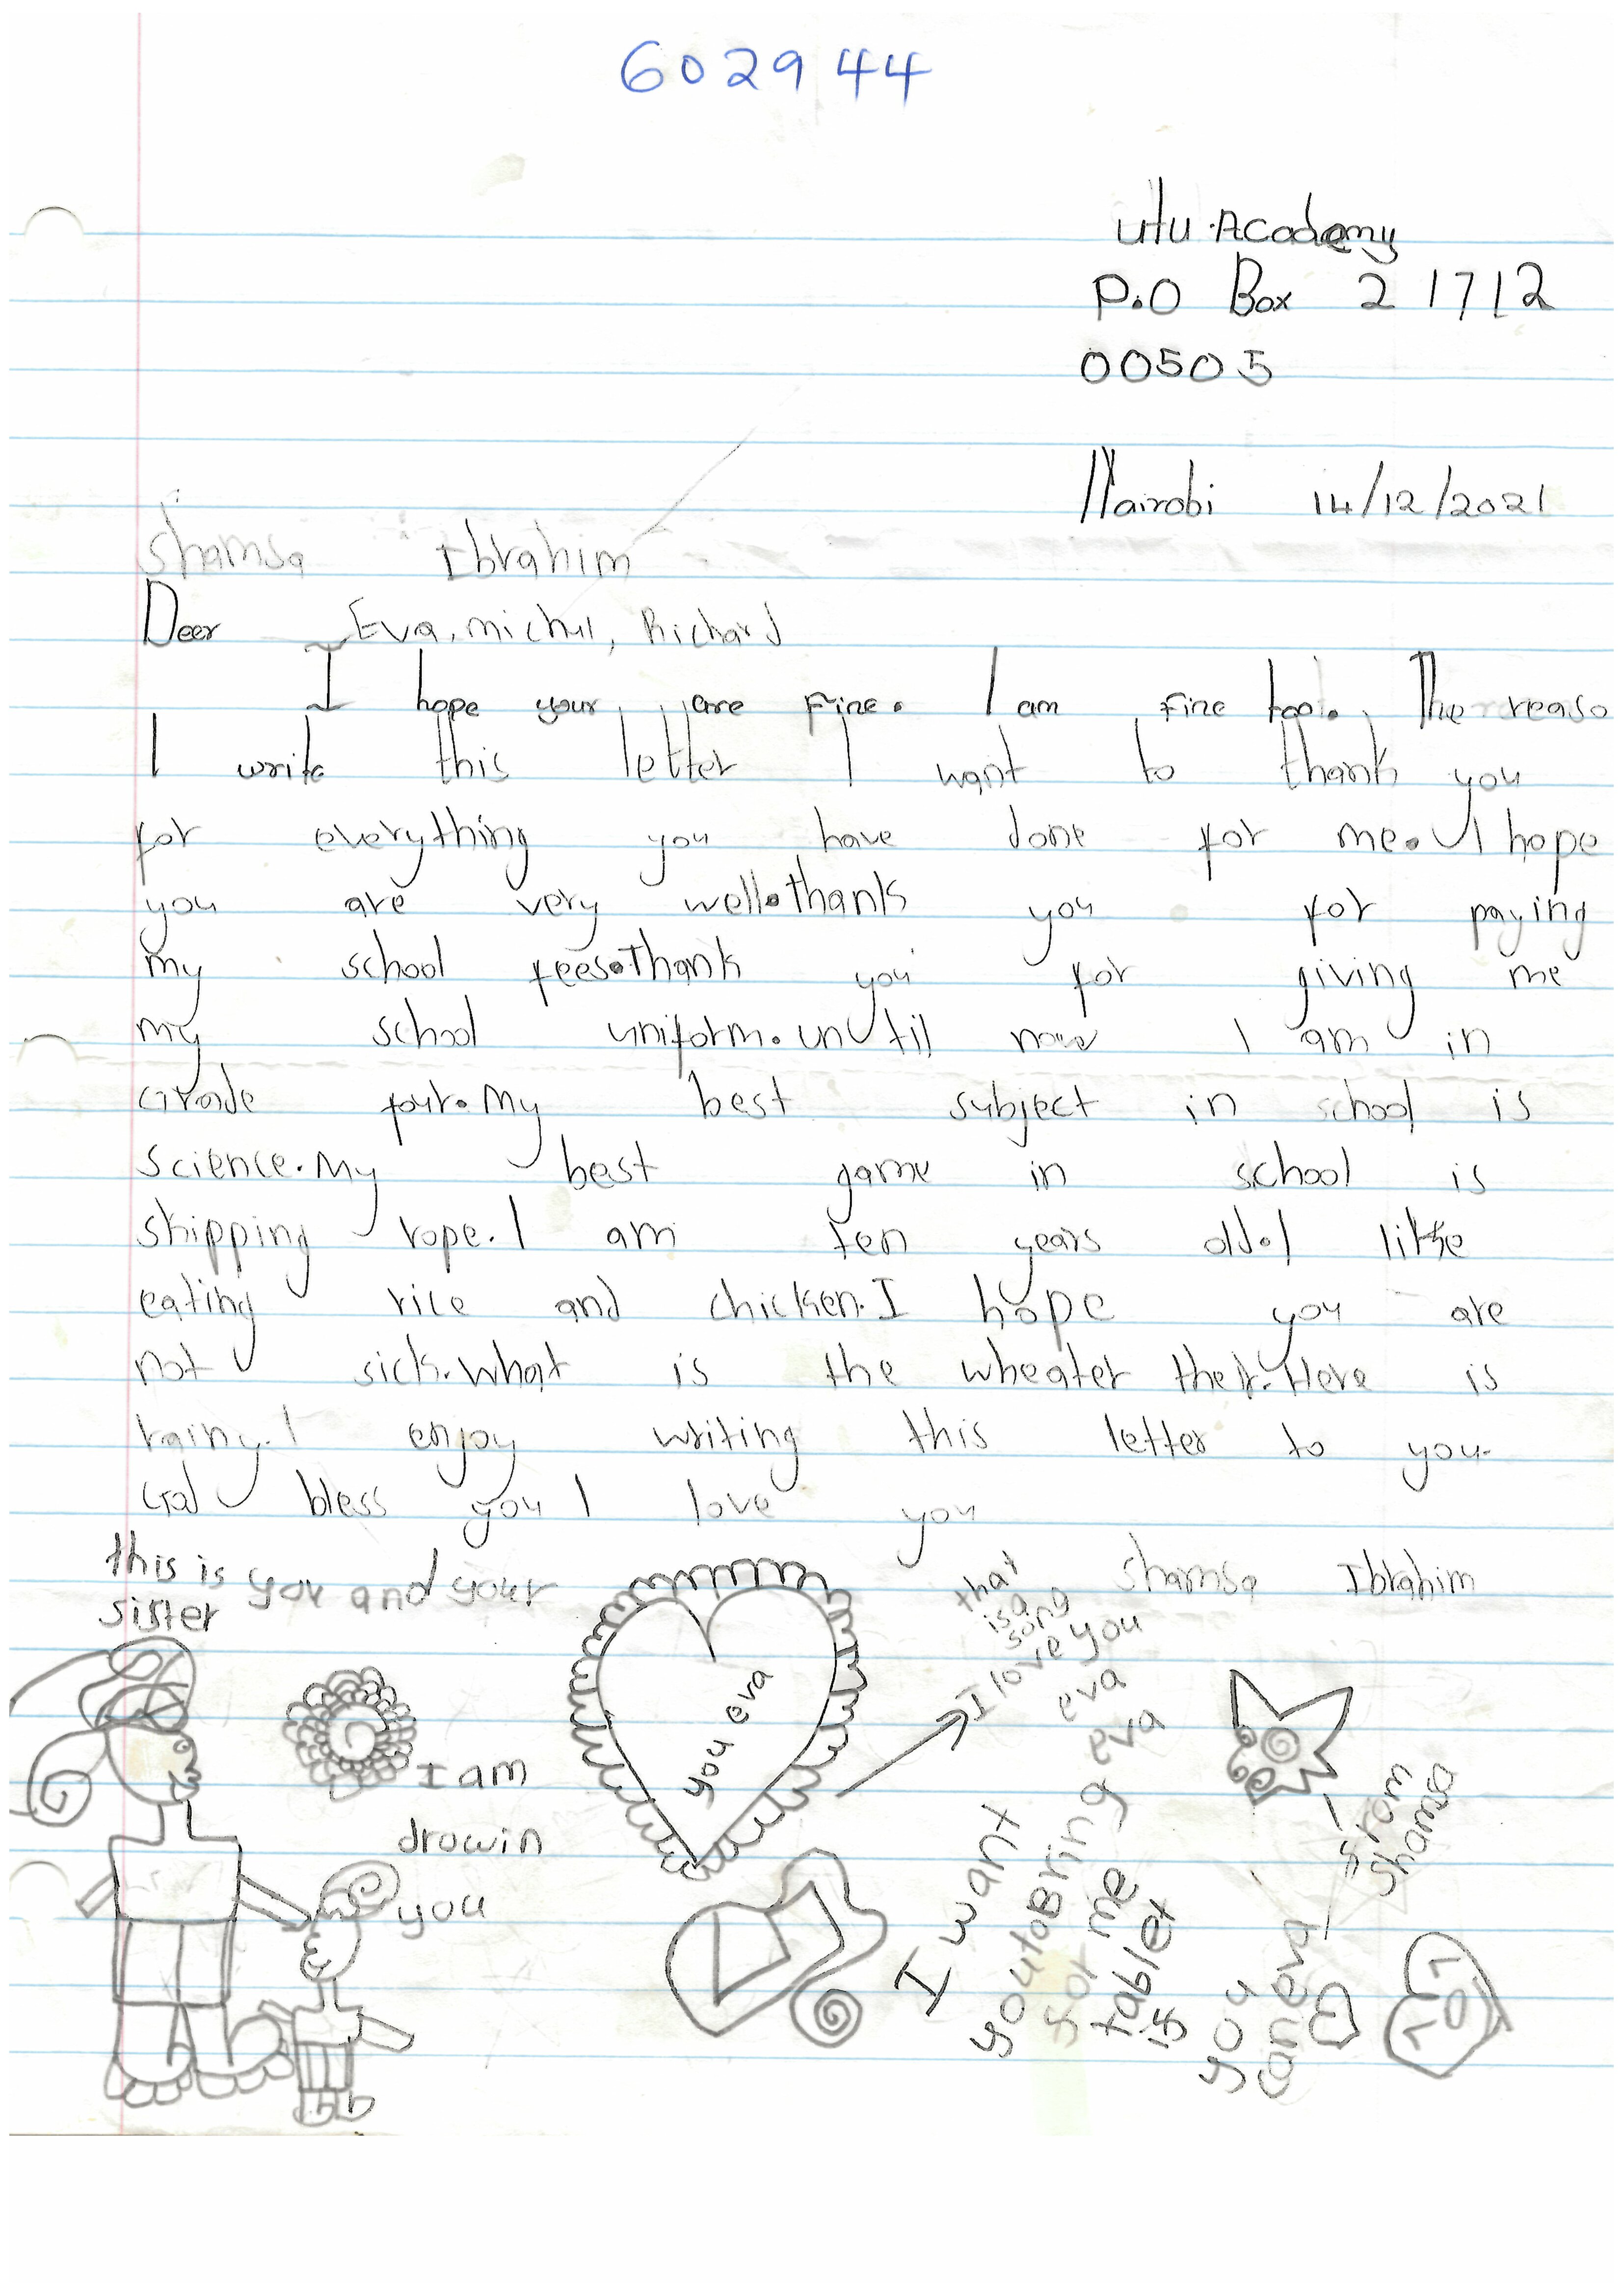 602944
Utu Academy
P.O Box 21712
00505
Nairobi 14/12/2021
Shamsa Ibrahim
Deer Eva, michul, Richard
I hope your are fine. I am fine too. The reaso
I write this letter I want to thank you
for everything you have done for me. I hope
you are very well. thank you for paying
my school fees. Thank you for giving me
my school uniform. until now I am in
Grade four. My best subject in school is
science. My best game in school is
skipping rope. I am ten years old. I like
eating rice and chicken. I hope you are
not sick. What is the wheater ther. Here is
rainy. I enjoy writing this letter to you.
God bless you I love you
Shamsa Ibrahim
this is you and your
sister
I am
drowin
you
you eva
that
is a
song
I love you
eva
eva
I want
you to Bring
for me
tablet
if
you
can eva
from
Shamsa